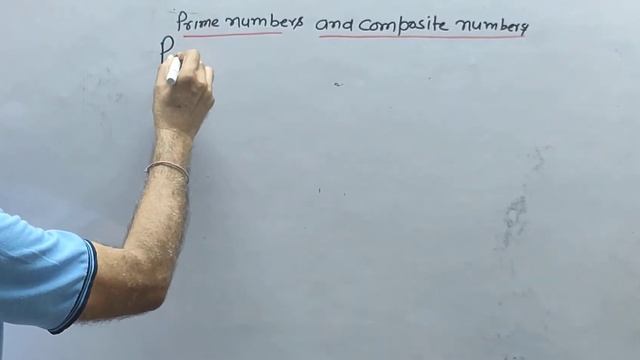 Prime numbers and composite numbers
P